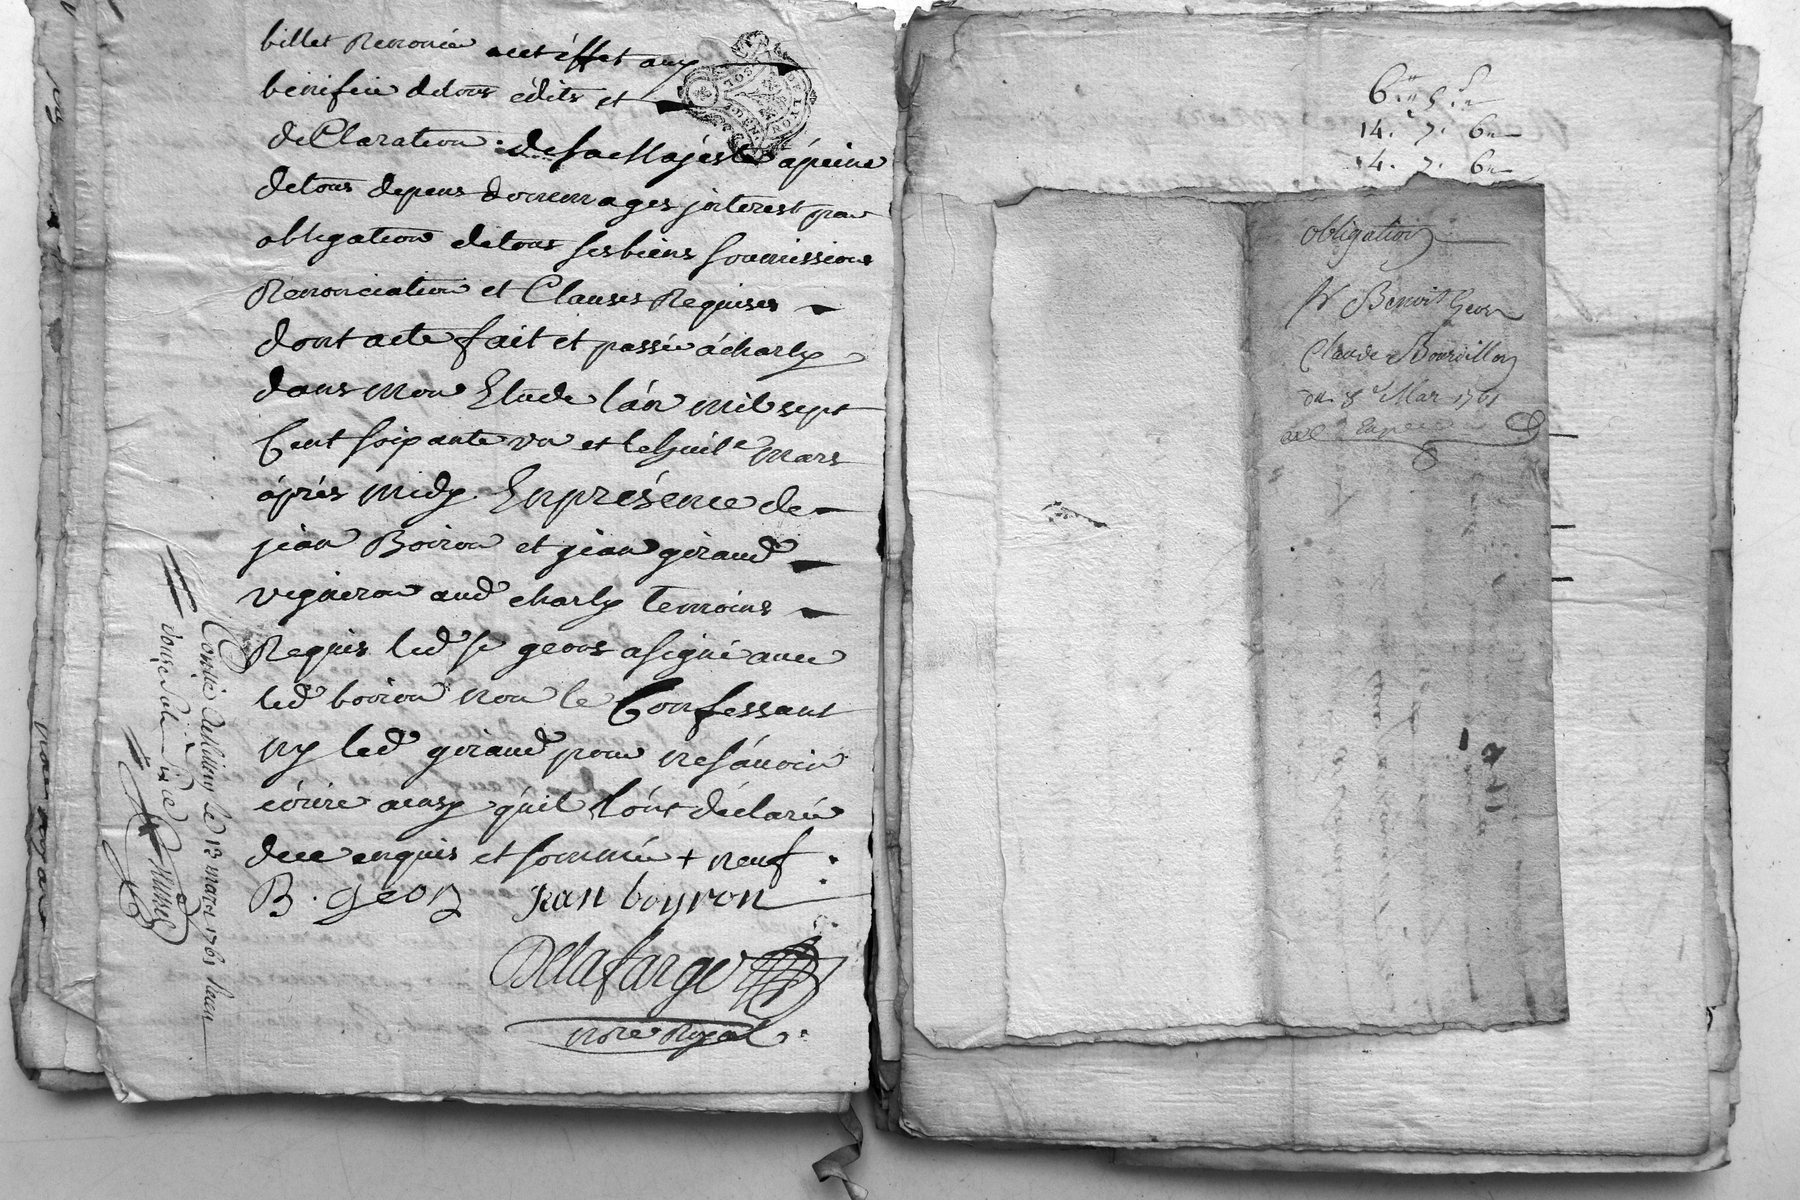 billet Renoncé acet éffet aux
bénifice detous édits et
deClaration desaMajesté ápeine
detous depens dommages jnterest par
obligation detous sesbiens soumissions
Renonciation et Clauses Requises
dont acte fait et passé ácharly
dans mon Etude lán mil sept
Cent soixante un et lehuit mars
áprés midy Enprésence de
jean Boiron et jean giraud
vigneron aud charly temoins
Requis led sr geors asigné avec
led boiron non le Confessant
ny led giraud pour nesávoir
écrire ainsy qúil lónt déclaré
dece enquis et sommé + neuf
B. geors Jean boyron
Delafarge
nore Royal
Controllé le 13 mars 1761 Reçu
douze sols
6
14. 7. 6
14. 7. 6
obligation
Sr Benoit Geors
Claude Bourdillon
du 8e Mar 1761